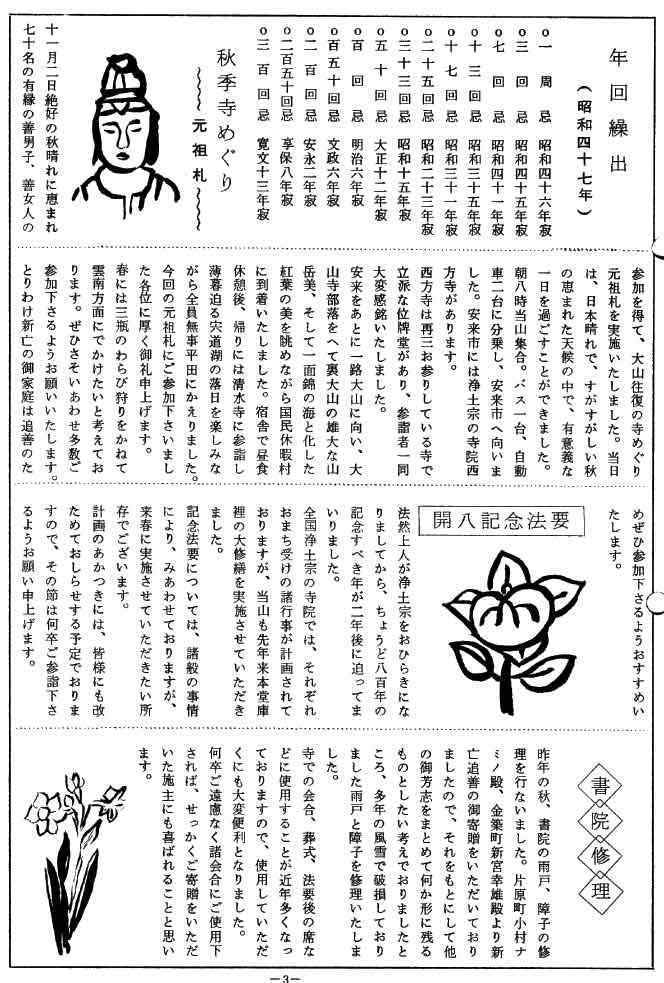 年回繰出
(昭和四十七年)
o一周忌 昭和四十六年寂
o三回忌 昭和四十五年寂
o七回忌 昭和四十一年寂
o十三回忌 昭和三十五年寂
o十七回忌 昭和三十一年寂
o二十五回忌 昭和二十三年寂
o三十三回忌 昭和十五年寂
o五十回忌 大正十二年寂
o百回忌 明治六年寂
o百五十回忌 文政六年寂
o二百回忌 安永二年寂
o二百五十回忌 享保八年寂
o三百回忌 寛文十三年寂
秋季寺めぐり
元祖札
十一月二日絶好の秋晴れに恵まれ
七十名の有縁の善男子、善女人の
参加を得て、大山往復の寺めぐり
元祖札を実施いたしました。当日
は、日本晴れで、すがすがしい秋
の恵まれた天候の中で、有意義な
一日を過ごすことができました。
朝八時当山集合。バス一台、自動
車二台に分乗し、安来市へ向いま
した。安来市には浄土宗の寺院西
方寺があります。
西方寺は再三お参りしている寺で
立派な位牌堂があり、参詣者一同
大変感銘いたしました。
安来をあとに一路大山に向い、大
山寺部落をへて裏大山の雄大な山
岳美、そして一面錦の海と化した
紅葉の美を眺めながら国民休暇村
に到着いたしました。宿舎で昼食
休憩後、帰りには清水寺に参詣し
薄暮迫る宍道湖の落日を楽しみな
がら全員無事平田にかえりました。
今回の元祖札にご参加下さいまし
た各位に厚く御礼申上げます。
春には三瓶のわらび狩りをかねて
雲南方面にでかけたいと考えてお
ります。ぜひさそいあわせ多数ご
参加下さるようお願いいたします。
とりわけ新亡の御家庭は追善のた
めぜひ参加下さるようおすすめい
たします。
開八記念法要
法然上人が浄土宗をおひらきにな
りましてから、ちょうど八百年の
記念すべき年が二年後に迫ってま
いりました。
全国浄土宗の寺院では、それぞれ
おまち受けの諸行事が計画されて
おりますが、当山も先年来本堂庫
裡の大修繕を実施させていただき
ました。
記念法要については、諸般の事情
により、みあわせておりますが、
来春に実施させていただきたい所
存でございます。
計画のあかつきには、皆様にも改
ためておしらせする予定でおりま
すので、その節は何卒ご参詣下さ
るようお願い申上げます。
書院修理
昨年の秋、書院の雨戸、障子の修
理を行ないました。片原町小村ナ
ミノ殿、金築町新宮幸雄殿より新
亡追善の御寄贈をいただいており
ましたので、それをもとにして他
の御芳志をまとめて何か形に残る
ものとしたい考えでおりましたと
ころ、多年の風雪で破損しており
ました雨戸と障子を修理いたしま
した。
寺での会合、葬式、法要後の席な
どに使用することが近年多くなっ
ておりますので、使用していただ
くにも大変便利となりました。
何卒ご遠慮なく諸会合にご使用下
されば、せっかくご寄贈をいただ
いた施主にも喜ばれることと思い
ます。
—3—